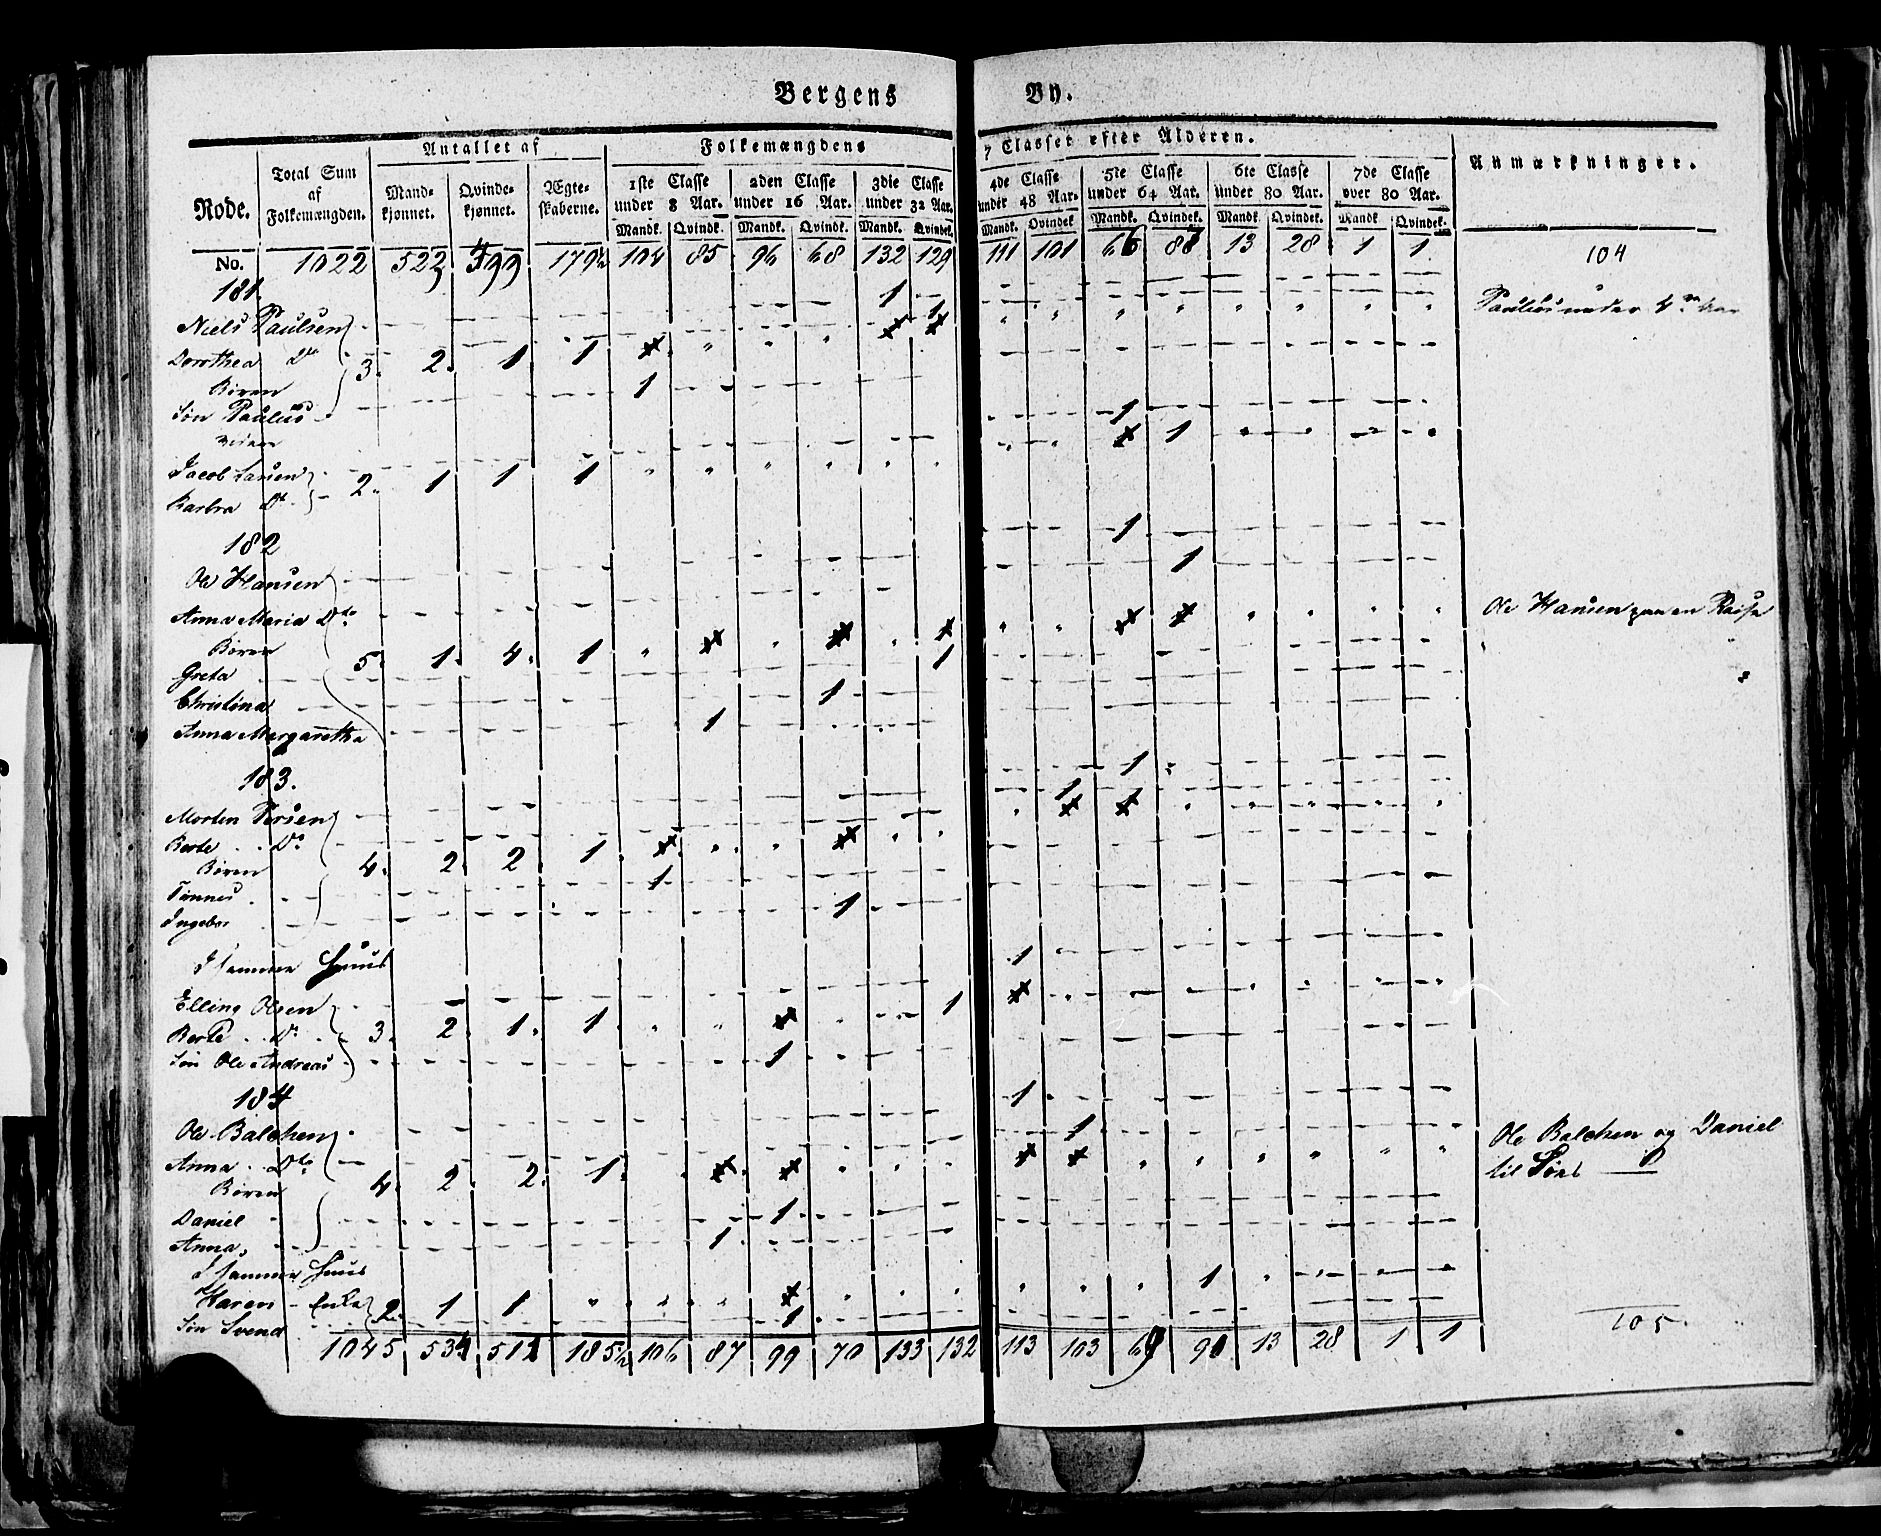 Bergens By.
Rode. Total Sum af Folkemængden. Antallet af Folkemængdens 7 Classer efter Alderen. Anmærkninger.
Mandkjønnet. Qvindekjønnet. Ægteskaberne. 1ste Classe under 8 Aar. 2den Classe under 16 Aar. 3die Classe under 32 Aar. 4de Classe under 48 Aar. 5te Classe under 64 Aar. 6te Classe under 80 Aar. 7de Classe over 80 Aar.
Mandk. Qvindk. Mandk. Qvindk. Mandk. Qvindek. Mandk. Qvindek Mandk. Qvindek. Mandk Qvindek. Mandk Qvindek.
No. 1022 522 499 179½ 104 85 96 68 132 129 111 101 66 87 13 28 1 1 104
181. 1
Niels Paulsen 1 Paulus under
Dorothea Do 3. 2. 1 1
Børen 1
Søn Paulus 1
1
Jacob Larsen 2. 1 1 1
Barbra Do
182 1
Ole Hansen 1
Anna Maria Dto Ole Hansen paa en Reise
Børen 5. 1. 4. 1
Greta 1
Christina 1
Anna Margaretha 1
183. 1
Morten Persen 1
Berte Do
Børen 4. 2. 2. 1
Tønnes 1
Ingebor 1
I samme Huus 1
Elling Olsen 1
Berte Do 3. 2. 1. 1
Søn Ole Andreas 1
184 1
Ole Balchen 1 Ole Balchen og Daniel
Anna Dto til Søes
Børen 4. 2. 2. 1
Daniel 1
Anna 1
I samme Huus
Karen Enke 2. 1 1 1
Søn Svend 1 105.
1045 534 512 185½ 106 87 99 70 133 132 113 103 69 90 13 28 1 1